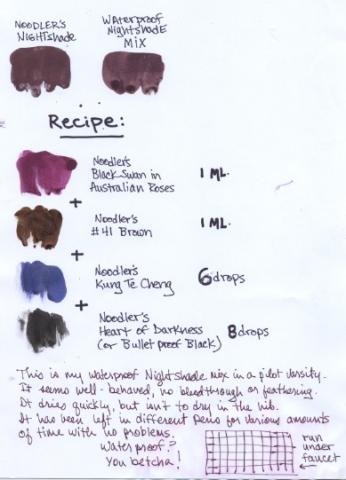 NOODLER'S
NIGHTSHADE
WATERPROOF
NIGHTSHADE
MIX
Recipe:
Noodler's
Black Swan in
Australian Roses
1 ML.
+
Noodler's
#41 Brown
1 ML.
+
Noodler's
Kung Te Cheng
6 drops
+
Noodler's
Heart of Darkness
(or Bullet proof Black)
8 drops
This is my waterproof Nightshade mix in a pilot varsity.
It seems well-behaved, no bleedthrough or feathering.
It dries quickly, but isn't to dry in the nib.
It has been left in different pens for various amounts
of time with no problems.
Waterproof?
You betcha!
run
under
faucet